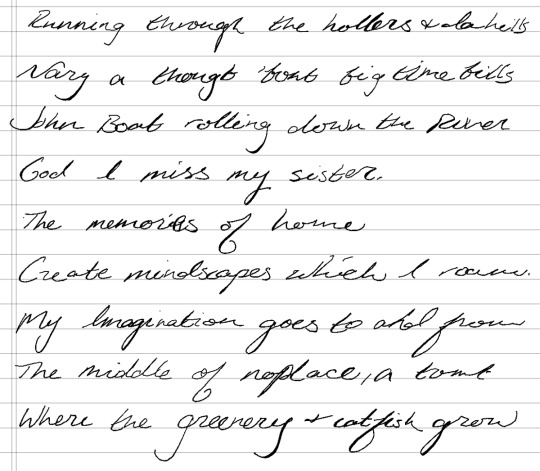 Running through the hollers & da hills
Nary a thought 'bout big time bills
John Boat rolling down the River
God I miss my sister.
The memories of home
Create mindscapes which I roam.
My Imagination goes to and from
The middle of noplace, a
Where the greenery + catfish grow